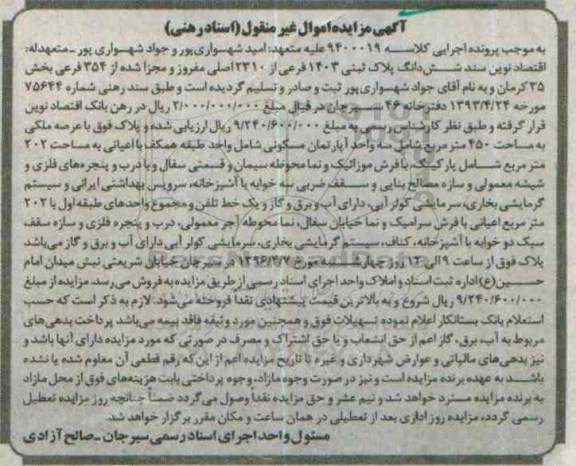 آگهی مزایده اموال غیر منقول (اسناد رهنی)
به موجب پرونده اجرایی کلاسه ۹۴۰۰۰۱۹ علیه متعهد: امید شهسواری‌پور و جواد شهسواری پور ـ متعهدله:
اقتصاد نوین سند شش‌دانگ پلاک ثبتی ۱۴۰۳ فرعی از ۲۳۱۰ اصلی مفروز و مجزا شده از ۳۵۴ فرعی بخش
۳۵ کرمان و به نام آقای جواد شهسواری‌پور ثبت و صادر و تسلیم گردیده است و طبق سند رهنی شماره ۷۵۶۴۴
مورخه ۱۳۹۳/۴/۲۴ دفترخانه ۴۶ سیرجان در قبال مبلغ ۲/۰۰۰/۰۰۰/۰۰۰ ریال در رهن بانک اقتصاد نوین
قرار گرفته و طبق نظر کارشناس رسمی به مبلغ ۹/۲۴۰/۶۰۰/۰۰۰ ریال ارزیابی شده و پلاک فوق با عرصه ملکی
به مساحت ۴۵۰ متر مربع شامل سه واحد آپارتمان مسکونی شامل واحد طبقه همکف با اعیانی به مساحت ۲۰۲
متر مربع شامل پارکینگ، با فرش موزائیک و نما محوطه سیمان و قسمتی سفال و با درب و پنجره‌های فلزی و
شیشه معمولی و سازه مصالح بنایی و سقف ضربی سه خوابه با آشپزخانه، سرویس بهداشتی ایرانی و سیستم
گرمایشی بخاری، سرمایشی کولر آبی، دارای آب و برق و گاز و یک خط تلفن و مجموع واحدهای طبقه اول با ۲۰۲
متر مربع اعیانی با فرش سرامیک و نما خیابان سفال، نما محوطه آجر معمولی، درب و پنجره فلزی و سازه سقف
سبک دو خوابه با آشپزخانه، کناف، سیستم گرمایشی بخاری، سرمایشی کولر آبی دارای آب و برق و گاز می‌باشد
پلاک فوق از ساعت ۹ الی ۱۲ روز چهارشنبه مورخ ۱۳۹۶/۴/۷ در سیرجان خیابان شریعتی نبش میدان امام
حسین (ع) اداره ثبت اسناد و املاک واحد اجرای اسناد رسمی از طریق مزایده به فروش می‌رسد. مزایده از مبلغ
۹/۲۴۰/۶۰۰/۰۰۰ ریال شروع و به بالاترین قیمت پیشنهادی نقداً فروخته می‌شود: لازم به ذکر است که حسب
استعلام بانک بستانکار اعلام نموده تسهیلات فوق و همچنین مورد وثیقه فاقد بیمه می‌باشد پرداخت بدهی‌های
مربوط به آب، برق، گاز اعم از حق انشعاب و یا حق اشتراک و مصرف در صورتی که مورد مزایده دارای آنها باشد و
نیز بدهی‌های مالیاتی و عوارض شهرداری و غیره تا تاریخ مزایده اعم از این‌که رقم قطعی آن معلوم شده یا نشده
باشد به عهده برنده مزایده است و نیز در صورت وجود مازاد، وجوه پرداختی بابت هزینه‌های فوق از محل مازاد
به برنده مزایده مسترد خواهد شد و نیم عشر و حق مزایده نقداً وصول می‌گردد ضمناً چنانچه روز مزایده تعطیل
رسمی گردد، مزایده روز اداری بعد از تعطیلی در همان ساعت و مکان مقرر برگزار خواهد شد.
مسئول واحد اجرای اسناد رسمی سیرجان ـ صالح آزادی